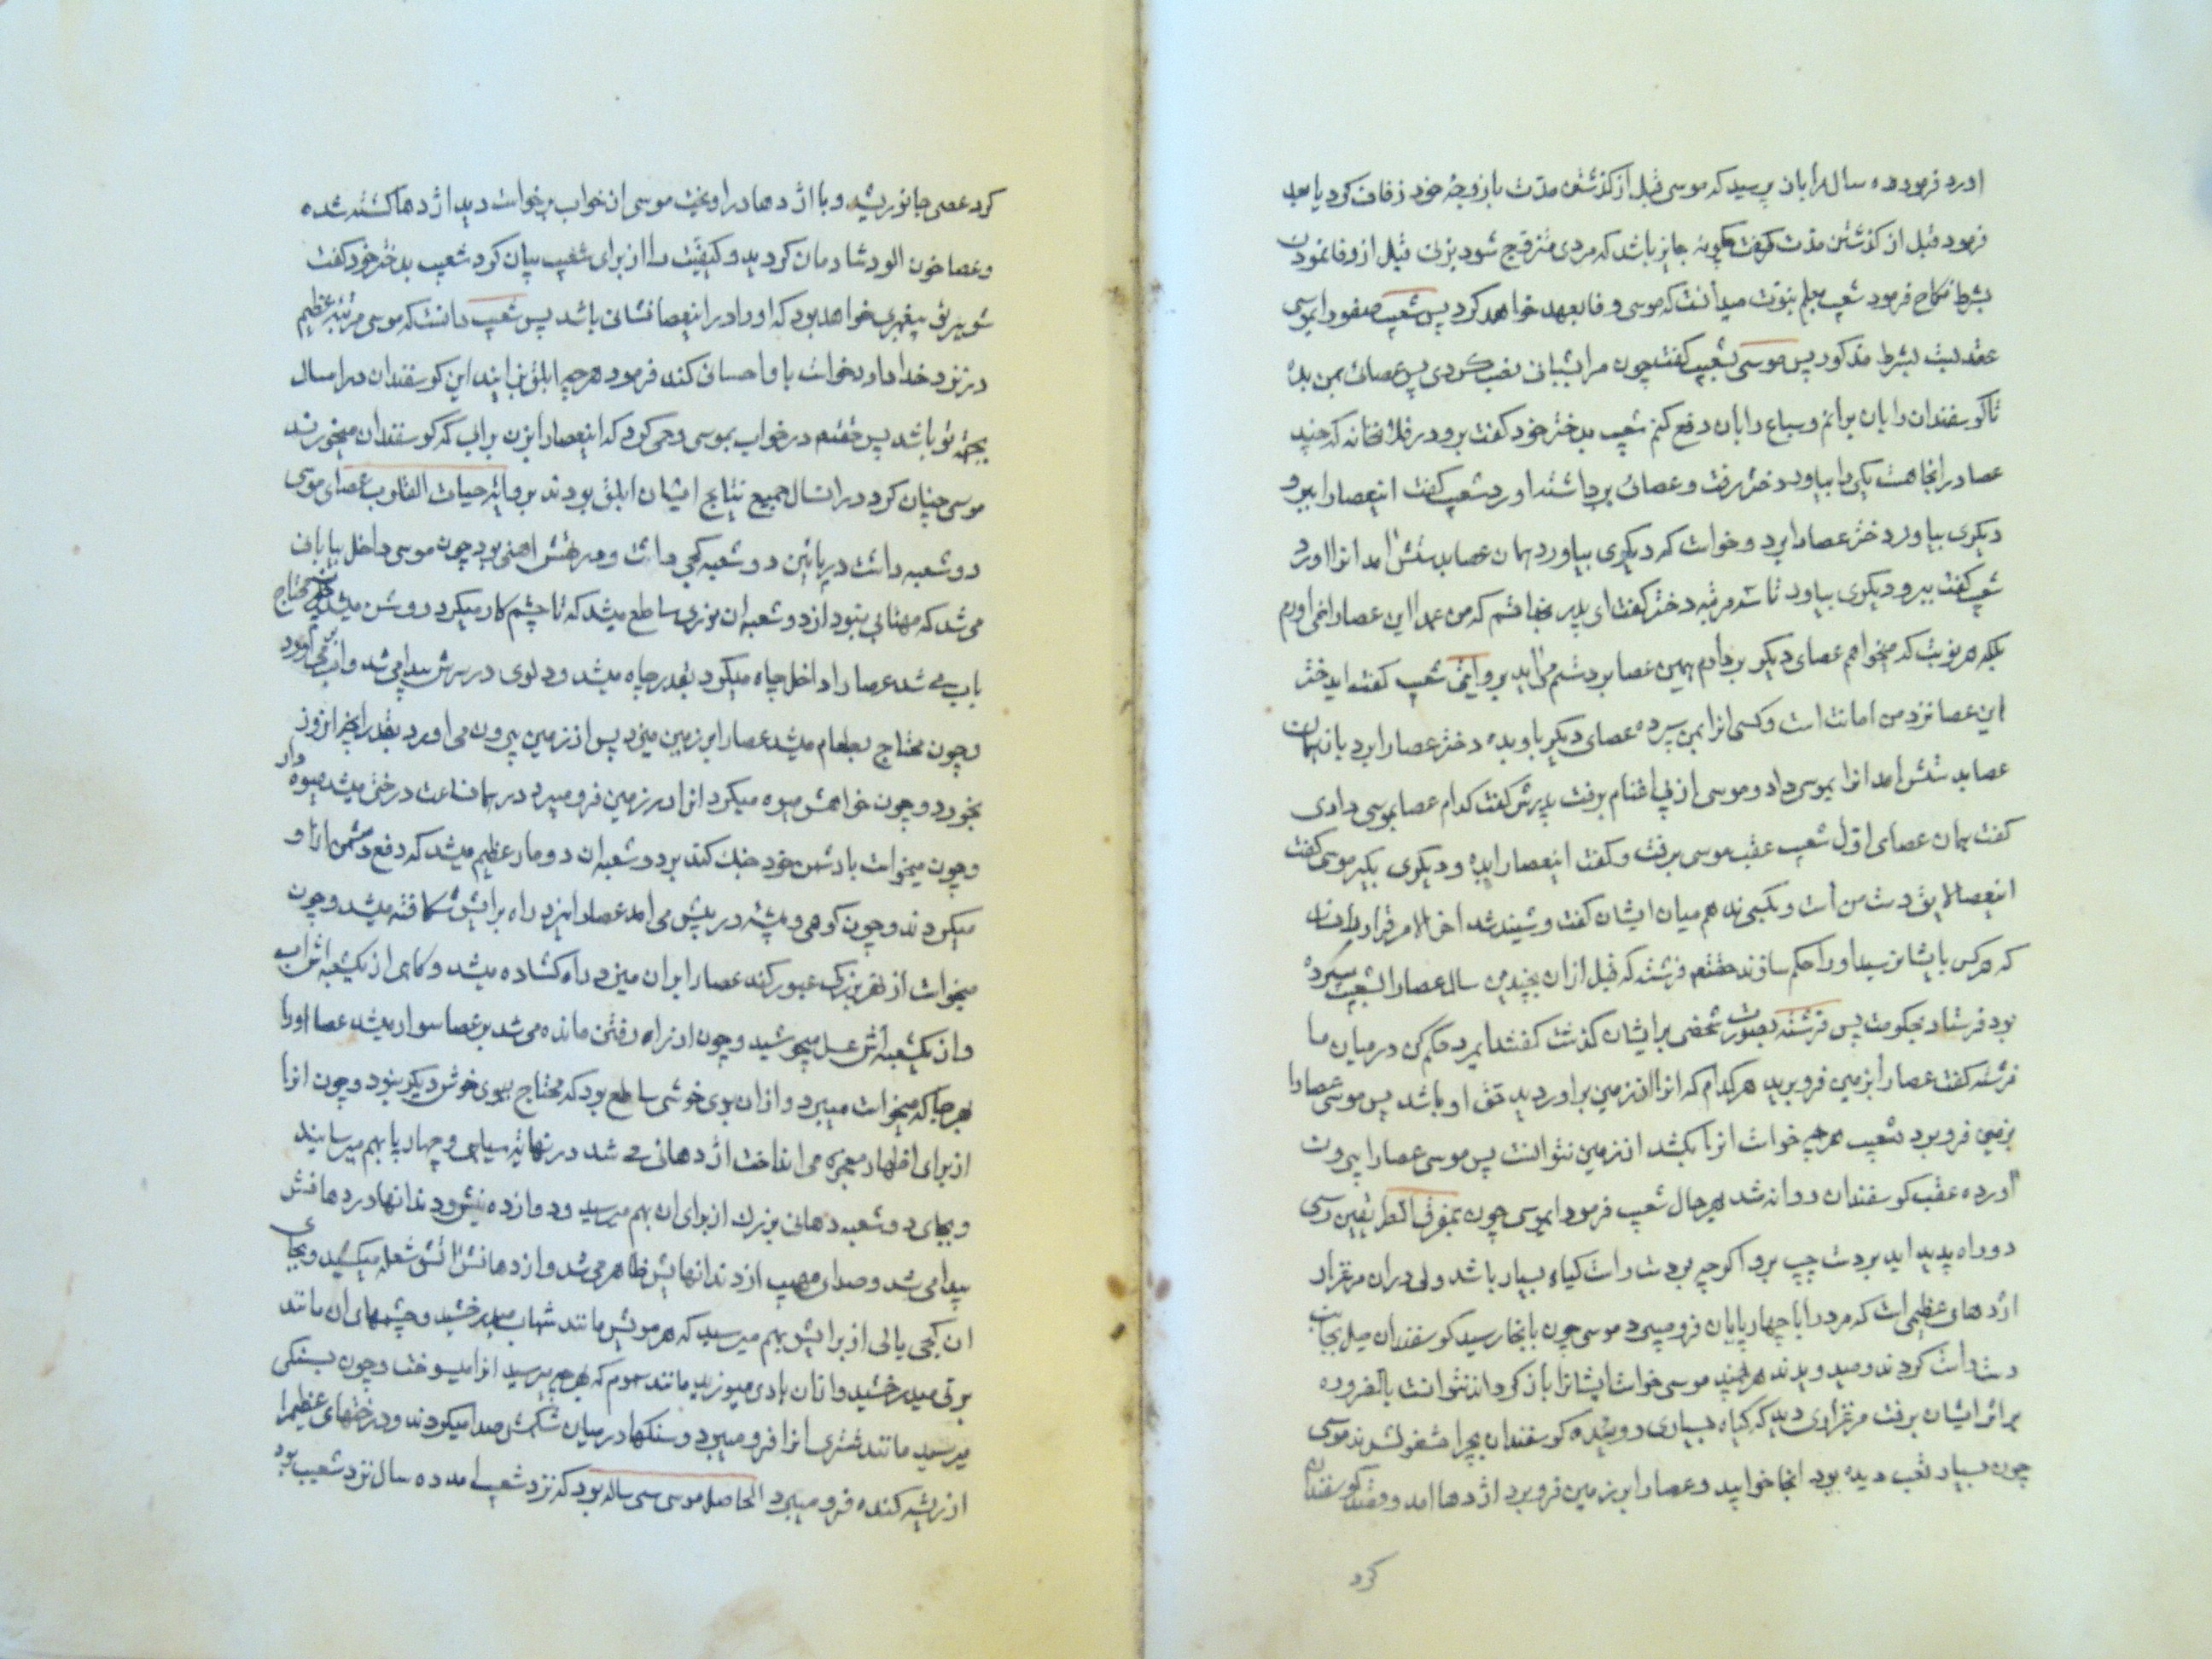 اورد فرمود ده سال را باز پرسید که موسی قبل از گذشتن مدّت با زوجهٔ خود زفاف کرد یا بعد
فرمود قبل از گذشتن مدت گفت چگونه جایز باشد که مردی متزوّج شود بزنی قبل از وفا نمودن
بشرط نکاح فرمود شعیب بعلم نبوّت میدانست که موسی وفا بعهد خواهد کرد پس شعیب صفورا بموسی
عقد بست بشرط مذکور پس موسی بشعیب گفت چون مرا بشبانی نصب کردی پس عصائی بمن بده
تا کوسفندان را بان برانم و سباع را بان دفع کنم شعیب بدختر خود گفت برو در فلان خانه که چند
عصا در انجا هست یکی را بیاور دختر رفت و عصائی برداشته اورد شعیب گفت اینعصا را ببر و
دیکری بیاور دختر عصا را برد و خواست که دیکری بیاورد همان عصا بدستش امد انرا اورد
شعیب گفت ببر و دیکری بیاور تا سه مرتبه دختر گفت ای پدر بخدا قسم که من عمدا این عصا را نمی اورم
بلکه هر نوبت که میخواهم عصای دیکر بردارم همین عصا بدستم می اید شعیب گفت ایدختر
این عصا نزد من امانت است و کسی انرا بمن سپرده عصای دیکر باو بده دختر عصا را برد باز همان
عصا بدستش امد انرا بموسی داد و موسی از پی اغنام برفت پدرش گفت کدام عصا بموسی دادی
گفت همان عصای اوّل شعیب عقب موسی برفت و گفت اینعصا را بده و دیکری بکیر موسی گفت
اینعصا لایق دست من است و بکسی ندهم میان ایشان گفت و شنید شد اخر الامر قرار دادند
که هرکس بایشان رسید او را حکم سازند فرشته که قبل از ان بچندین سال عصا را بشعیب سپرده
بود فرستاد بحکومت پس فرشته بصورت شخصی بر ایشان گذشت گفتند ایمرد حکم کن در میان ما
فرشته گفت عصا را بزمین فرو برید هر کدام که انرا از زمین براوردید حقّ او باشد پس موسی عصا را
بزمین فرو برد شعیب هرچه خواست انرا بکشد از زمین نتوانست پس موسی عصا را بیرون
اورده عقب کوسفندان روانه شد بهر حال شعیب فرمود ایموسی چون بمفرق الطریقین رسی
دو راه پدید اید بر دست چپ برو اکرچه بر دست راست کیاه بسیار باشد ولی در ان مرغزار
اژدهای عظیمی است که مرد را با چهارپایان فرو میبرد موسی چون بانجا رسید کوسفندان میل بجانب
دست راست کردند و میدویدند هرچند موسی خواست ایشانرا باز کرداند نتوانست بالضروره
بر اثر ایشان برفت مرغزاری دید که گیاه بسیاری روییده کوسفندان بچرا مشغول شدند موسی
چون بسیار تعب دیده بود انجا خوابید و عصا را بر زمین فرو برد اژدها امد و قصد کوسفندان
کرد
کرد عصی جانور شد و با اژدها دراویخت موسی از خواب برخواست دید اژدها کشته شده
و عصا خون الود شادمان کردید و کیفیّت را از برای شعیب بیان کرد شعیب بدختر خود گفت
شوهر تو پیغمبری خواهد بود که او را در اینعصا نشانی باشد پس شعیب دانست که موسی مرتبه عظیم
در نزد خدا دارد خواست با او احسان کند فرمود هرچه ابلق بزایند این کوسفندان در امسال
بجهة تو باشد پس در خواب بموسی وحی کرد که اینعصا را بزن برابی که کوسفندان میخورند
موسی چنان کرد در انسال جمیع نتایج ایشان ابلق بودند بروایة حیات القلوب عصای موسی
دو شعبه داشت در پائین دو شعبه کجی داشت و سر اهنی بود چون موسی داخل بیابان
می شد که مهتابی نبود از دو شعبه ان نوری ساطع میشد که تا چشم کار میکرد روشن میشد چون محتاج
باب می شد عصا را داخل چاه میکرد بقدر چاه میشد و دلوی در سرش پیدا می شد و اب بر می آورد
و چون محتاج بطعام میشد عصا را بر زمین میزد پس از زمین بیرون می اورد بقدر انچه انروز
بخورد و چون خواهش میوه میکرد انرا در زمین فرو میبرد در همانساعت درختی میشد میوه دار
و چون میخواست با دشمن خود جنك کند بر دو شعبه ان دو مار عظیم میشد که دفع دشمن از او
میکردند و چون کوهی و پشته در پیش می امد عصا را میزد راه برایش شکافته میشد و چون
میخواست از نهر بزرگ عبور کند عصا را بر ان میزد راه کشاده میشد و کاهی از یکشعبه اش اب
و از یکشعبه اش عسل میجوشید و چون از راه رفتن مانده می شد بر عصا سوار میشد عصا او را
بهر جا که میخواست میبرد و از ان بوی خوشی ساطع بود که محتاج ببوی خوش دیکر نبود و چون انرا
از برای اظهار معجزه می انداخت اژدهائی می شد در نهایة سیاهی و چهار پا بهم میرسانید
و بجای دو شعبه دهانی بزرك از برای ان بهم میرسید و دوازده نیش و دندانها در دهانش
پیدا می شد و صدای مهیب از دندانهایش ظاهر می شد و از دهانش اتش شعله میکشید و بجای
ان کجی یالی از برایش بهم میرسید که هر مویش مانند شهاب میدرخشید و چشمهای ان مانند
برقی میدرخشید و از ان بادی میوزید مانند سموم که بهرچه میرسید انرا میسوخت و چون بسنکی
میرسید مانند شتری انرا فرو میبرد و سنکها در میان شکمش صدا میکردند و درختهای عظیم را
از ریشه کنده فرو میبرد الحاصل موسی سی ساله بود که نزد شعیب امد ده سال نزد شعیب بود